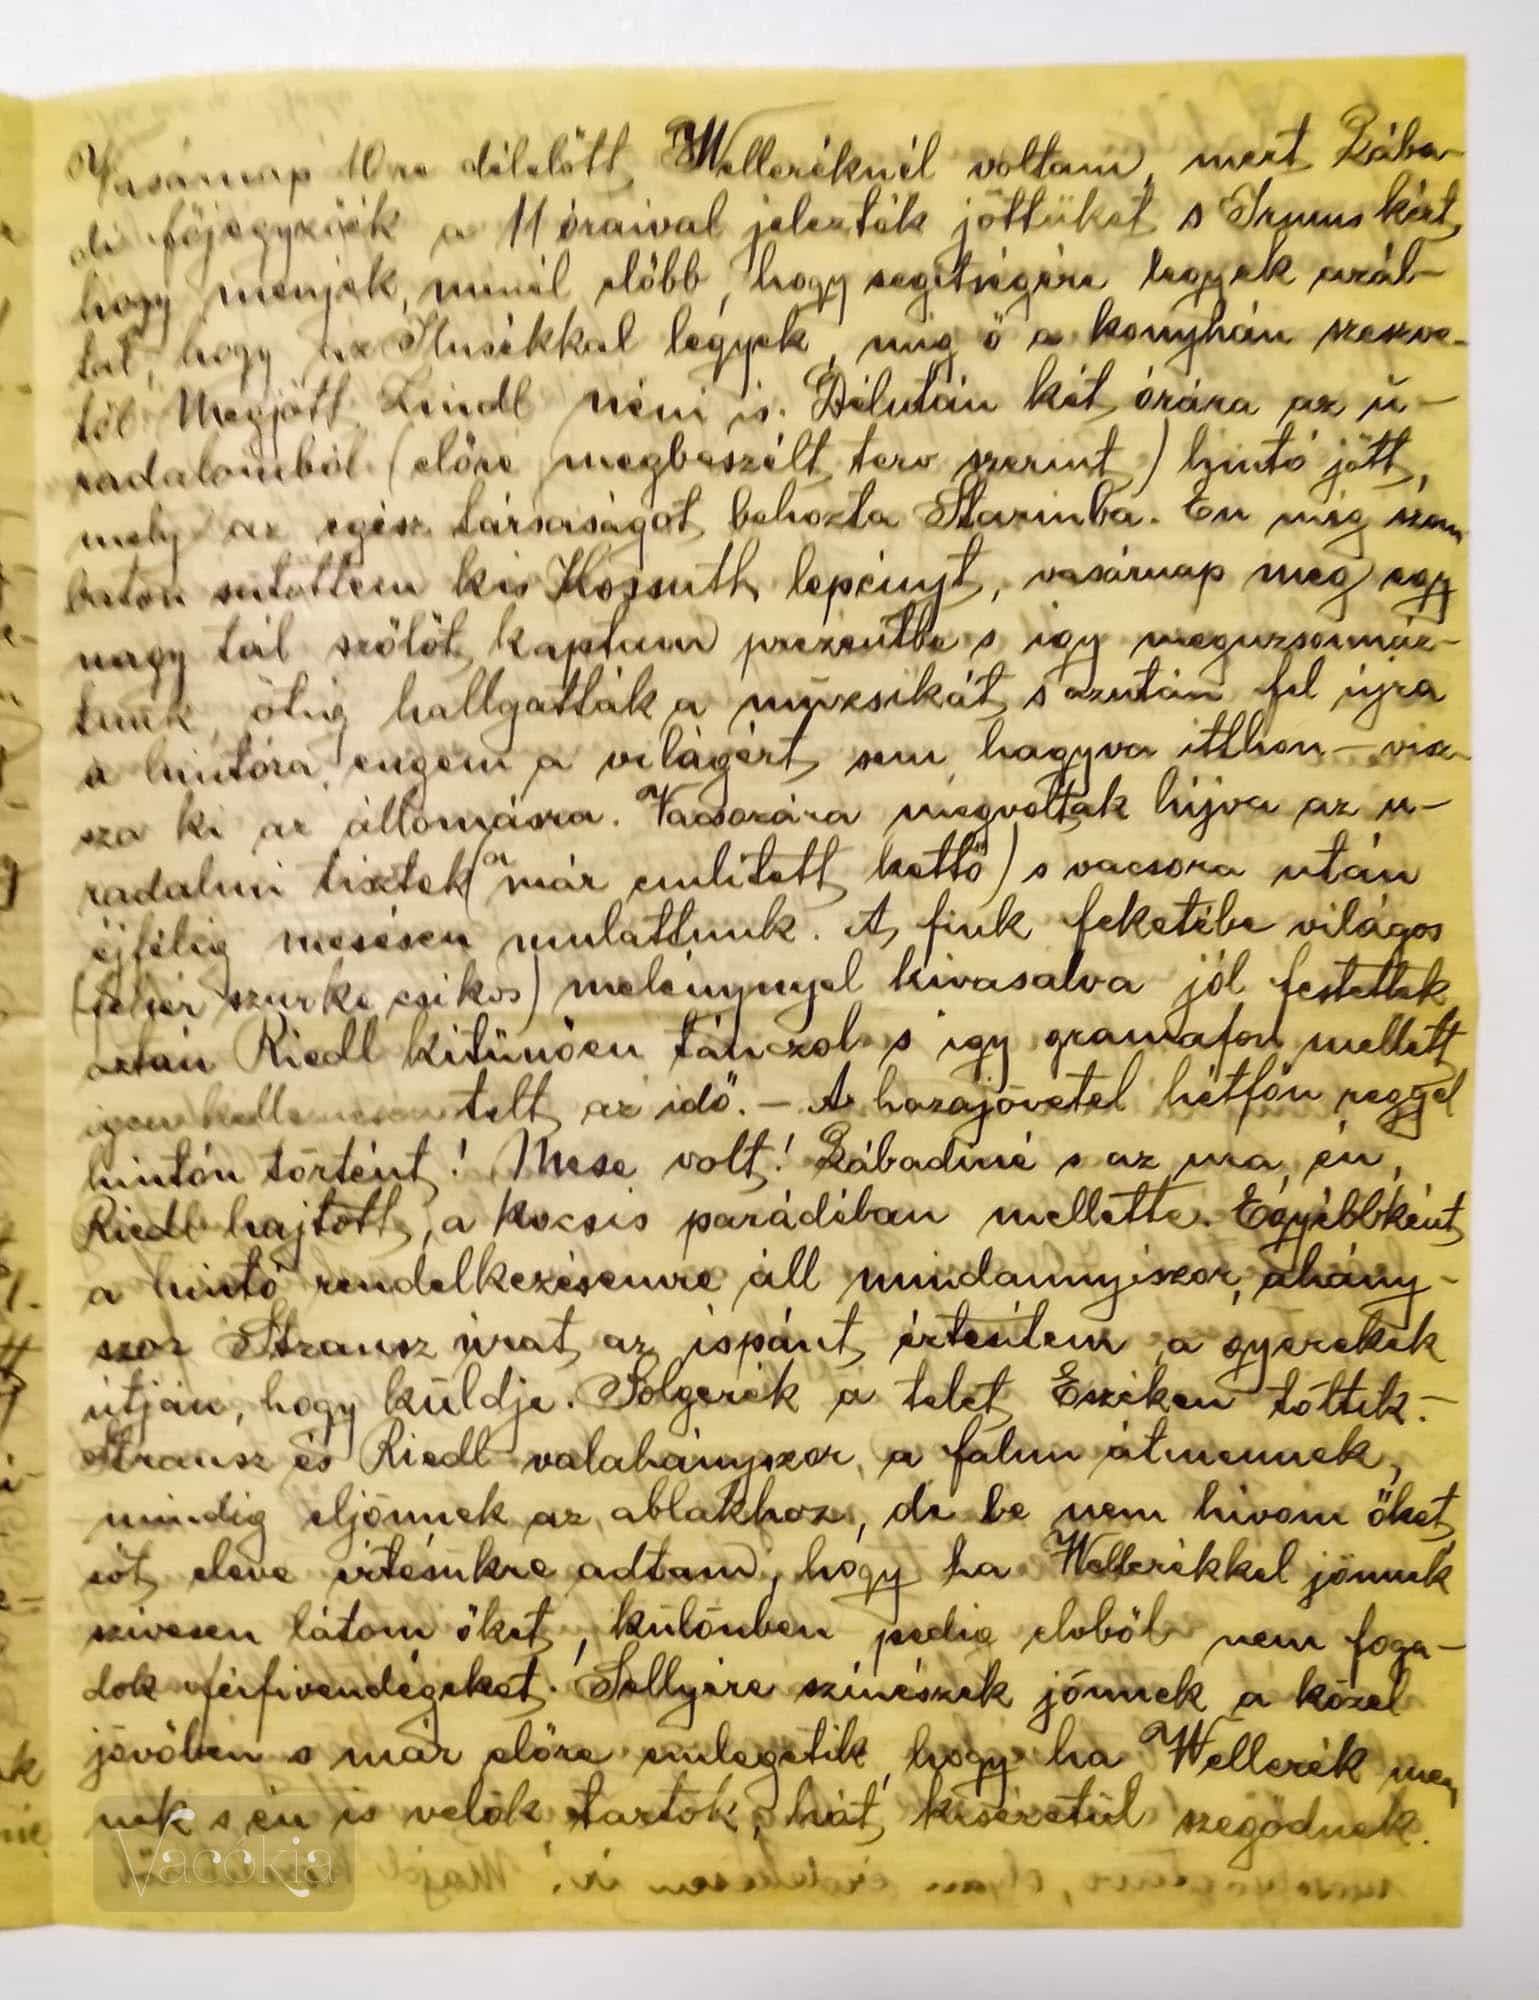 Vasárnap 10re délelőtt Welleréknél voltam, mert Zába-
di főjegyzőék a 11 óraival jelezték jöttüket s Irmus kért,
hogy menjek, minél előbb, hogy segítségére legyek azál-
tal, hogy az Ilusékkal legyek, míg ő a konyhán szeszve-
től. Megjött Lindl néni is. Délután két órára az u-
radalomból (előre megbeszélt terv szerint) hintó jött,
mely az egész társaságot behozta Starinba. Én még szom
baton sütöttem kis Kossuth lepényt, vasárnap meg egy
nagy tál szőlőt kaptam prezentbe s így meguzsonnáz-
tunk, ötig hallgatták a muzsikát s azután fel újra
a hintóra, engem a világért sem hagyva itthon – visz-
sza ki az állomásra. Vacsorára megvoltak hijva az u-
radalmi tisztek (a már említett kettő) s vacsora után
éjfélig mesésen mulattunk. A fiuk feketébe világos
(fehér szürke csikos) melénynyel kivasalva jól festettek
aztán Riedl kitünően tánczol s igy gramafon mellett
igen kellemesen telt az idő. – A hazajövetel hétfőn reggel
hintón történt! Mese volt! Zábadiné s az ura, én,
Riedl hajtott, a kocsis parádéban mellette. Egyébbként
a hintó rendelkezésemre áll mindannyiszor, ahány-
szor Stransz urat az ispánt értesítem a gyerekek
útján, hogy küldje. Solgerék a telet Eszéken töltik. –
Stransz és Riedl valahányszor a falun átmennek,
mindig eljönnek az ablakhoz, de be nem hivom őket,
sőt eleve értésükre adtam, hogy ha Wellerékkel jönnek
szivesen látom őket, különben pedig elvből nem foga-
dok férfivendégeket. Sellyére szinészek jönnek a közel
jövőben s már előre emlegetik, hogy ha Wellerék men
nek s én is velök tartok, hát kiséretül szegődnek.
Vacókia